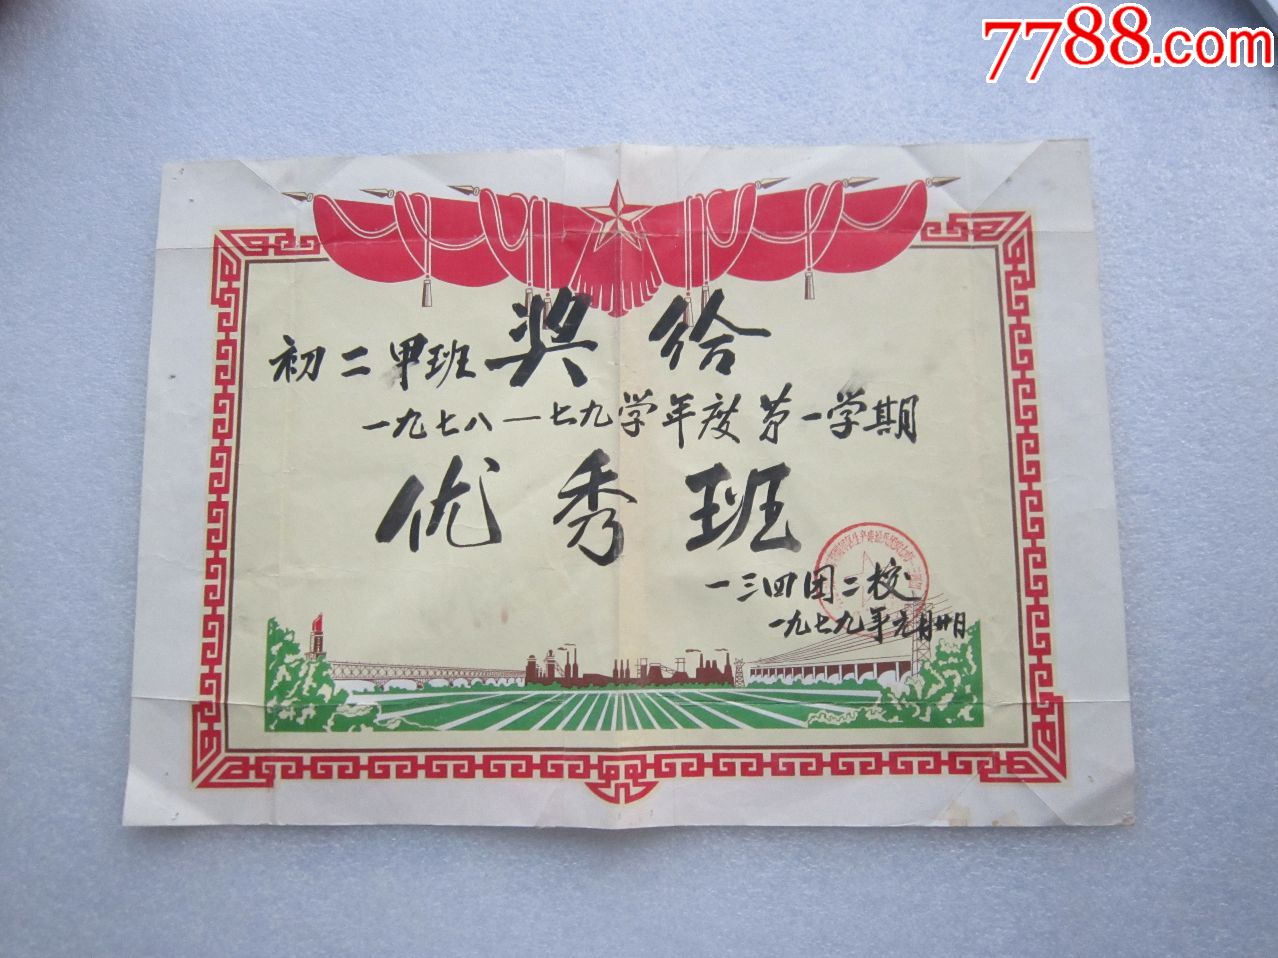 7788.com
初二甲班 奖给
一九七八—七九学年度第一学期
优秀班
一三四团二校
一九七九年元月廿日